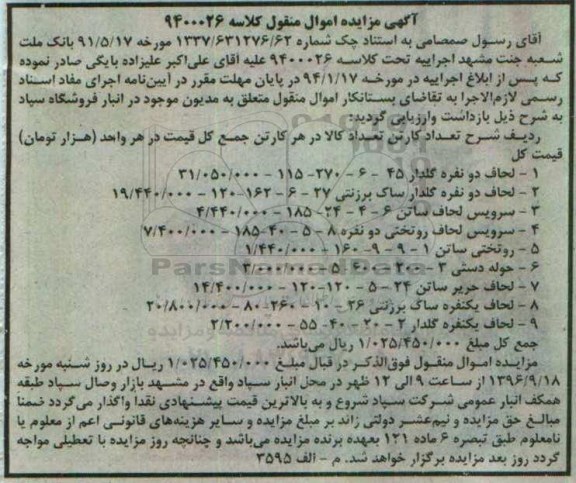 آگهی مزایده اموال منقول کلاسه ۹۴۰۰۰۲۶
آقای رسول صمصامی به استناد چک شماره ۱۳۳۷/۶۳۱۲۷۶/۶۲ مورخه ۹۱/۵/۱۷ بانک ملت
شعبه جنت مشهد اجراییه تحت کلاسه ۹۴۰۰۰۲۶ علیه آقای علی‌اکبر علیزاده بایگی صادر نموده
که پس از ابلاغ اجراییه در مورخه ۹۴/۱/۱۷ در پایان مهلت مقرر در آیین‌نامه اجرای مفاد اسناد
رسمی لازم‌الاجرا به تقاضای بستانکار اموال منقول متعلق به مدیون موجود در انبار فروشگاه سپاد
به شرح ذیل بازداشت وارزیابی گردید:
ردیف شرح تعداد کارتن تعداد کالا در هر کارتن جمع کل قیمت در هر واحد (هزار تومان)
قیمت کل
۱ - لحاف دو نفره گلدار ۴۵ - ۶ - ۲۷۰- ۱۱۵ - ۳۱/۰۵۰/۰۰۰
۲ - لحاف دو نفره گلدار ساک برزنتی ۲۷ - ۶ - ۱۶۲-۱۲۰ - ۱۹/۴۴۰/۰۰۰
۳ - سرویس لحاف ساتن ۶ - ۴ - ۲۴- ۱۸۵ - ۴/۴۴۰/۰۰۰
۴ - سرویس لحاف روتختی دو نفره ۸ - ۵ - ۴۰-۱۸۵ - ۷/۴۰۰/۰۰۰
۵ - روتختی ساتن ۱ - ۹ - ۹- ۱۶۰ - ۱/۴۴۰/۰۰۰
۶ - حوله دستی ۳ - ۲۰۰ - ۶۰۰- ۵ - ۳/۰۰۰/۰۰۰
۷ - لحاف حریر ساتن ۲۴ - ۵ - ۱۲۰-۱۲۰ - ۱۴/۴۰۰/۰۰۰
۸ - لحاف یکنفره ساک برزنتی ۲۶ - ۱۰ - ۲۶۰-۸۰ - ۲۰/۸۰۰/۰۰۰
۹ - لحاف یکنفره گلدار ۲ - ۲۰ - ۴۰- ۵۵ - ۲/۲۰۰/۰۰۰
جمع کل مبلغ ۱/۰۲۵/۴۵۰/۰۰۰ ریال می‌باشد.
مزایده اموال منقول فوق‌الذکر در قبال مبلغ ۱/۰۲۵/۴۵۰/۰۰۰ ریال در روز شنبه مورخه
۱۳۹۶/۹/۱۸ از ساعت ۹ الی ۱۲ ظهر در محل انبار سپاد واقع در مشهد بازار وصال سپاد طبقه
همکف انبار عمومی شرکت سپاد شروع و به بالاترین قیمت پیشنهادی نقدا واگذار می‌گردد ضمنا
مبالغ حق مزایده و نیم‌عشر دولتی زائد بر مبلغ مزایده و سایر هزینه‌های قانونی اعم از معلوم یا
نامعلوم طبق تبصره ۶ ماده ۱۲۱ بعهده برنده مزایده می‌باشد و چنانچه روز مزایده با تعطیلی مواجه
گردد روز بعد مزایده برگزار خواهد شد. م - الف ۳۵۹۵
ParsNamadData